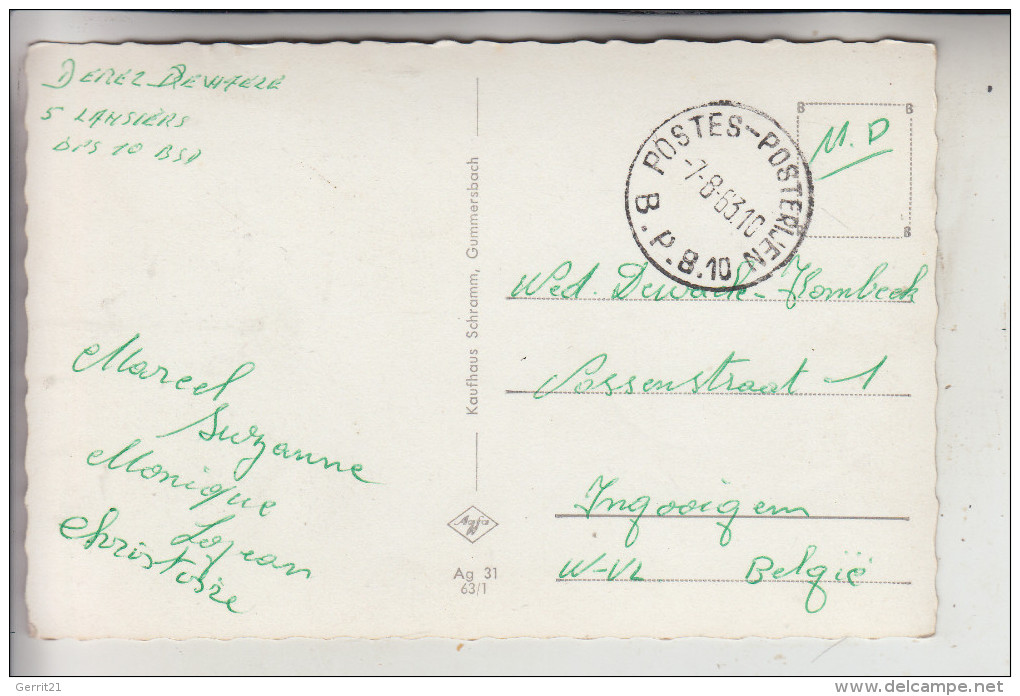 5 LANSIERS
BPS 10 BSD
Marcel
Suzanne
Monique
Lojean
Christoire
Kaufhaus Schramm, Gummersbach
Agfa
Ag 31
63/1
POSTES-POSTERIJEN
-7-8-63.10
B.P.S.10
B B
M.P
B B
Wed. Dewaele-Kombeck
Sassenstraat 1
Ingooigem
W-VL België
Gerrit21
www.delcampe.net